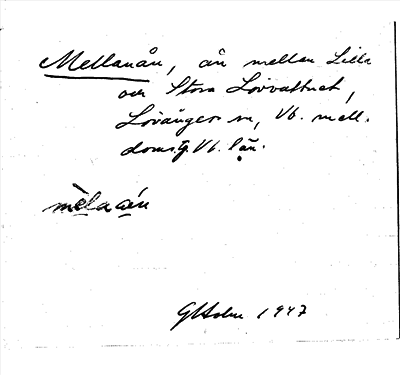 Mellanån, ån mellan Lilla
och Stora Lövvattnet,
Lövångers sn, Vb. mell.
doms. Vb. län.
mèlaån
GHolm 1947